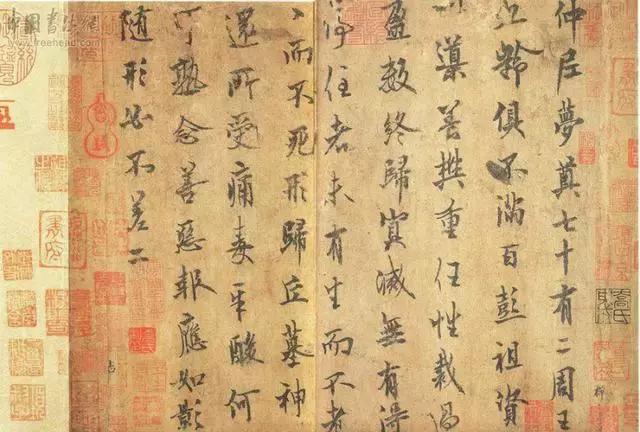 仲尼夢奠七十有二周王
九齡俱不滿百彭祖資
以導養樊重任性裁過
盈數終歸冥滅無有得
停住者未有生而不老
老而不死形歸丘墓神
還所受痛毒辛酸何
可熟念善惡報應如影
隨形必不差二
中国书法网
www.freehead.com